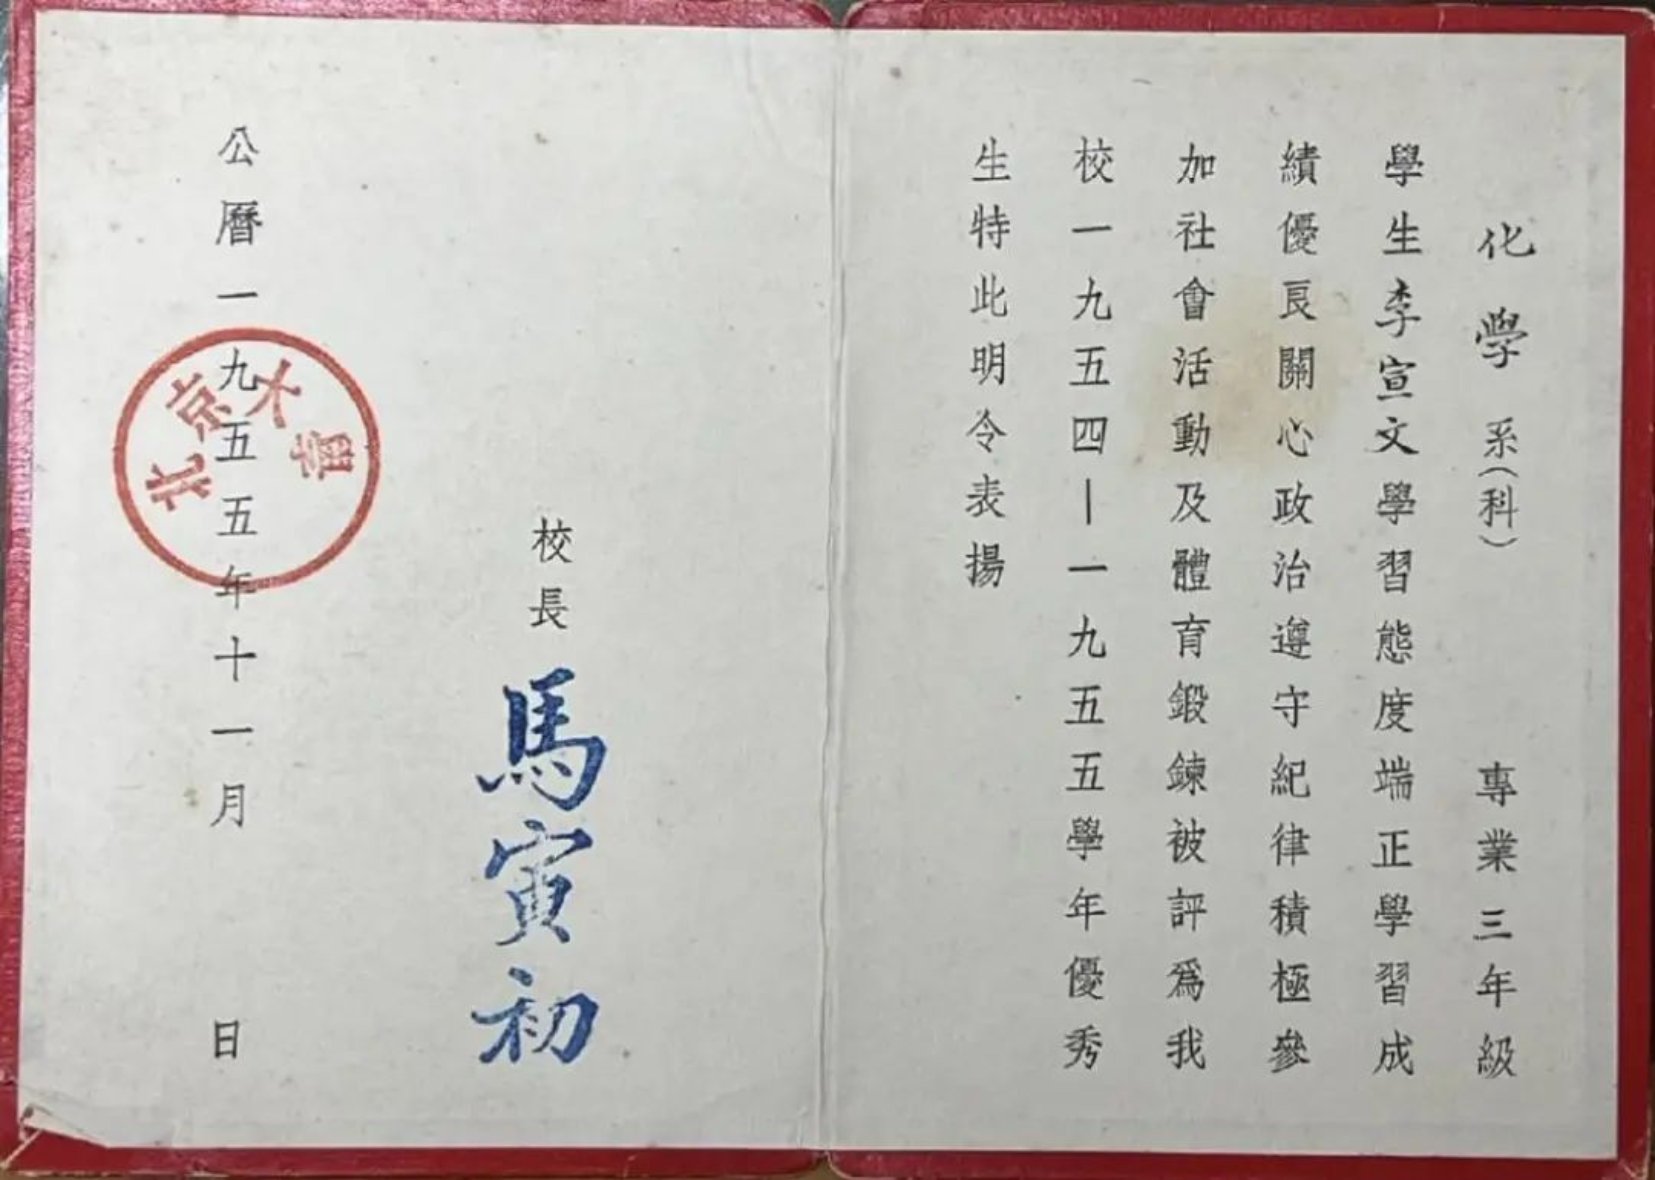 化学系（科）　專業三年級
學生李宣文學習態度端正學習成
績優良關心政治遵守紀律積極參
加社會活動及體育鍛鍊被評爲我
校一九五四—一九五五學年優秀
生特此明令表揚
校長 馬寅初
公曆一九五五年十一月　日
北京大學